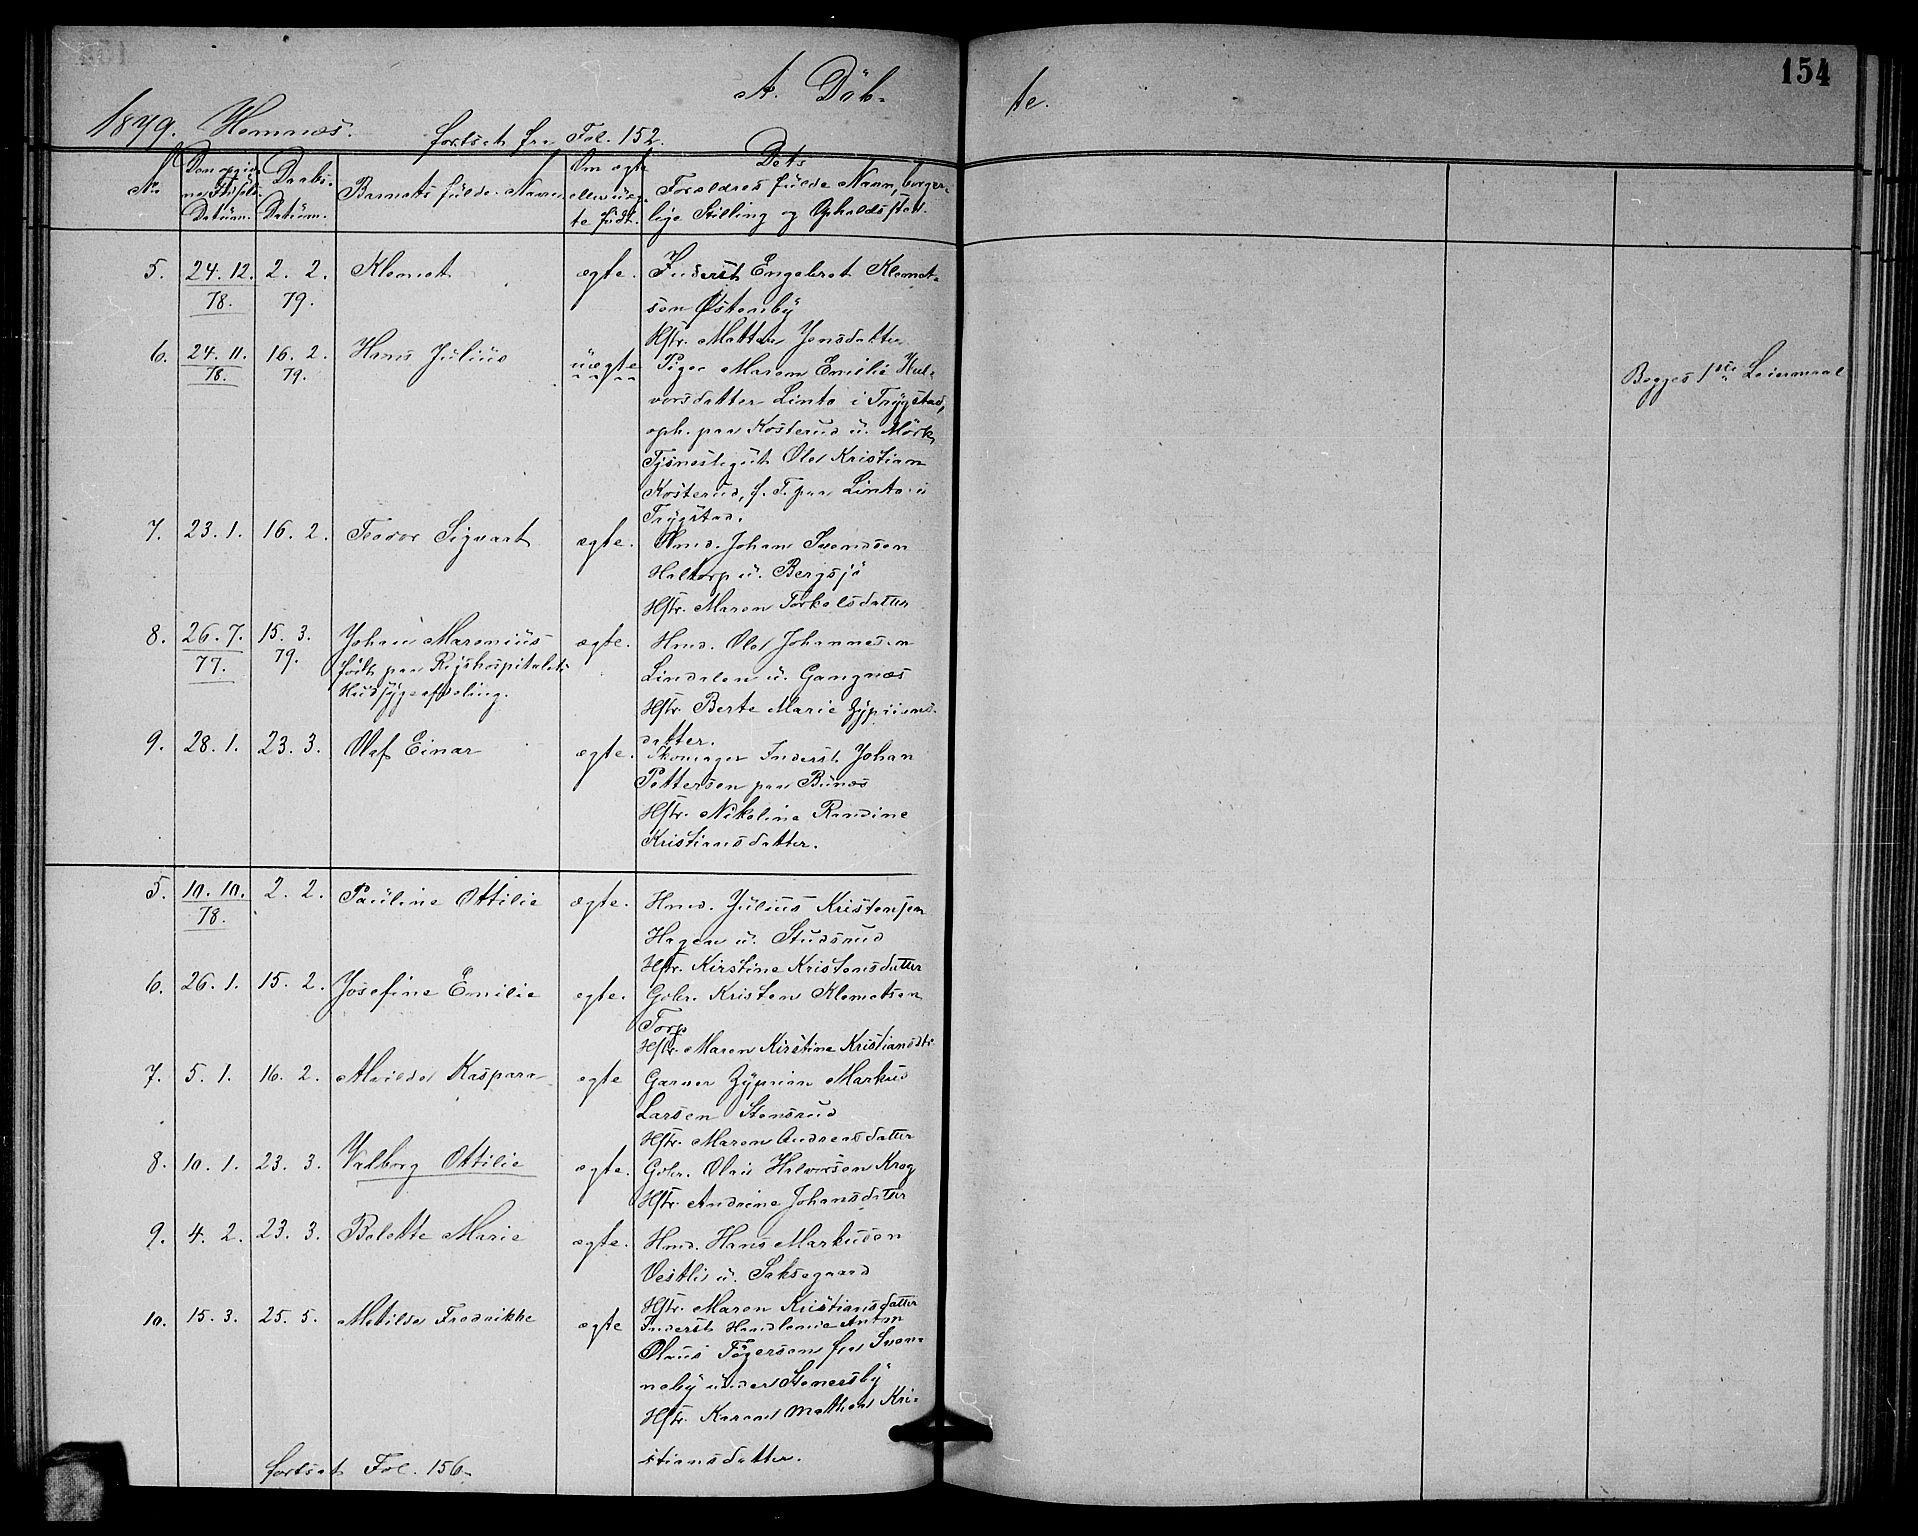 154
A. Döb- te.
1879. Hemnæs. fortsat fra Fol. 152.
No Den opgivne Fødsels Datum. Daabs- Datum. Barnets fulde Navn Om ægte eller uægte født. Dets Forældres fulde Navn, borgerlige Stilling og Opholdssted.
5. 24. 12. 78. 2. 2. 79. Klemet ægte. Inderst Engebret Klemet-
sen Østenby
Hstr. Mathea Jensdatter
6. 24. 11. 78. 16. 2. 79. Hans Julius uægte Pige Maren Emilie Hal-
vorsdatter Linto i Trygstad,
oph. paa Kosterud u. Mörk
Tjenestegut Ole Kristian
Kosterud, f. T. paa Linto i
Trygstad.
Begges 1ste Leiermaal
7. 23. 1. 16. 2. Teodor Sigvart ægte. Hmd. Johan Svendsen
Haltorp u. Bergsjö
Hstr. Maren Torkelsdatter
8. 26. 7. 77. 15. 3. 79. Johan Marenius ægte. Hmd. Ole Johannesen
født paa Rigshospitalets
Hudsygeafdeling.
Lindalen u. Gangnæs
Hstr. Berte Marie Zypriens-
datter.
9. 28. 1. 23. 3. Olaf Einar ægte. Skomager Inderst Johan
Pettersen paa Bunæs
Hstr. Nikoline Randine
Kristiansdatter.
5. 10. 10. 78. 2. 2. Pauline Ottilie ægte. Hmd. Julius Kristensen
Hagen u. Studsrud
Hstr. Kirstine Kristensdatter
6. 26. 1. 15. 2. Josefine Emilie ægte. Gbr. Kristen Klemetsen
Torp
Hstr. Maren Kirstine Kristiansdt.
7. 5. 1. 16. 2. Alvilde Kaspara ægte Garver Zyprian Markus
Larsen Stensrud
Hstr. Maren Andreasdatter
8. 10. 1. 23. 3. Valborg Ottilie ægte. Gbr. Olaus Halvorsen Krog
Hstr. Andrine Johansdatter
9. 4. 2. 23. 3. Bolette Marie ægte. Hmd. Hans Markusen
Vestli u. Saksegaard
Hstr. Maren Kristiansdatter
10. 15. 3. 25. 5. Matilde Fredrikke ægte Inderst Handlende Anton
Olaus Tøgersen fra Sven-
neby under Homersby
Hstr. Karen Mathea Kri-
stiansdatter.
fortsat Fol. 156.